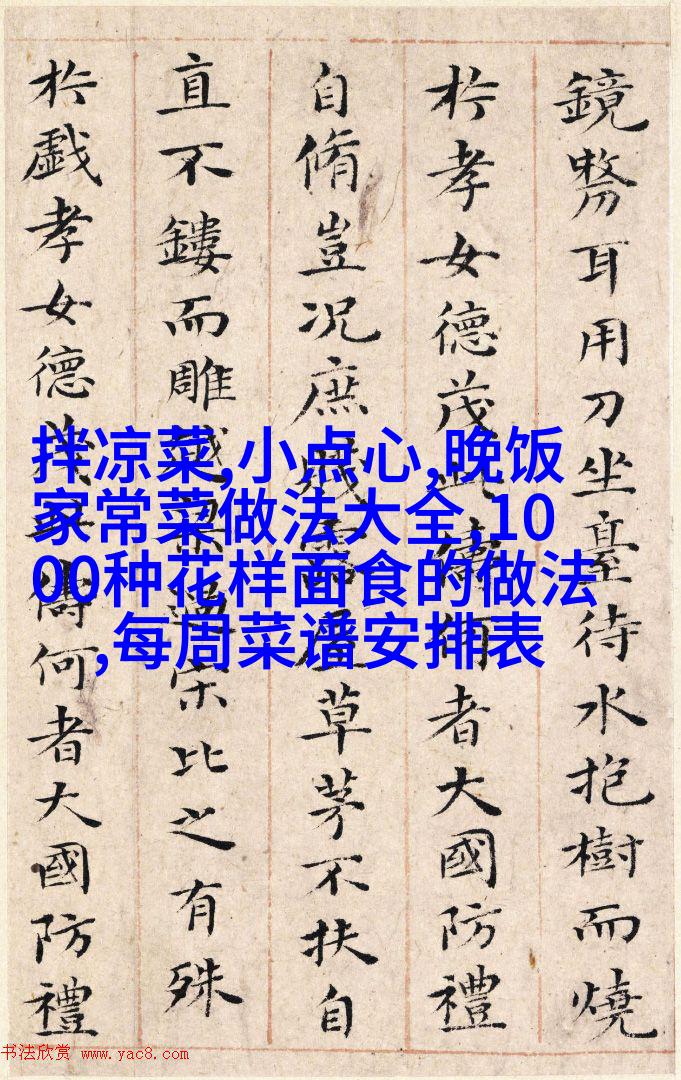 鏡弊耳用刀坐臺待水抱樹而燒
於孝女德茂此儔何者大國防禮
自脩豈況庶賤露屋草茅不扶自
直不鏤而雕越梁過宋比之有殊
於戲孝女德茂此儔何者大國防禮
拌凉菜,小点心,晚饭
家常菜做法大全,10
00种花样面食的做法
,每周菜谱安排表
书法欣赏 www.yac8.com